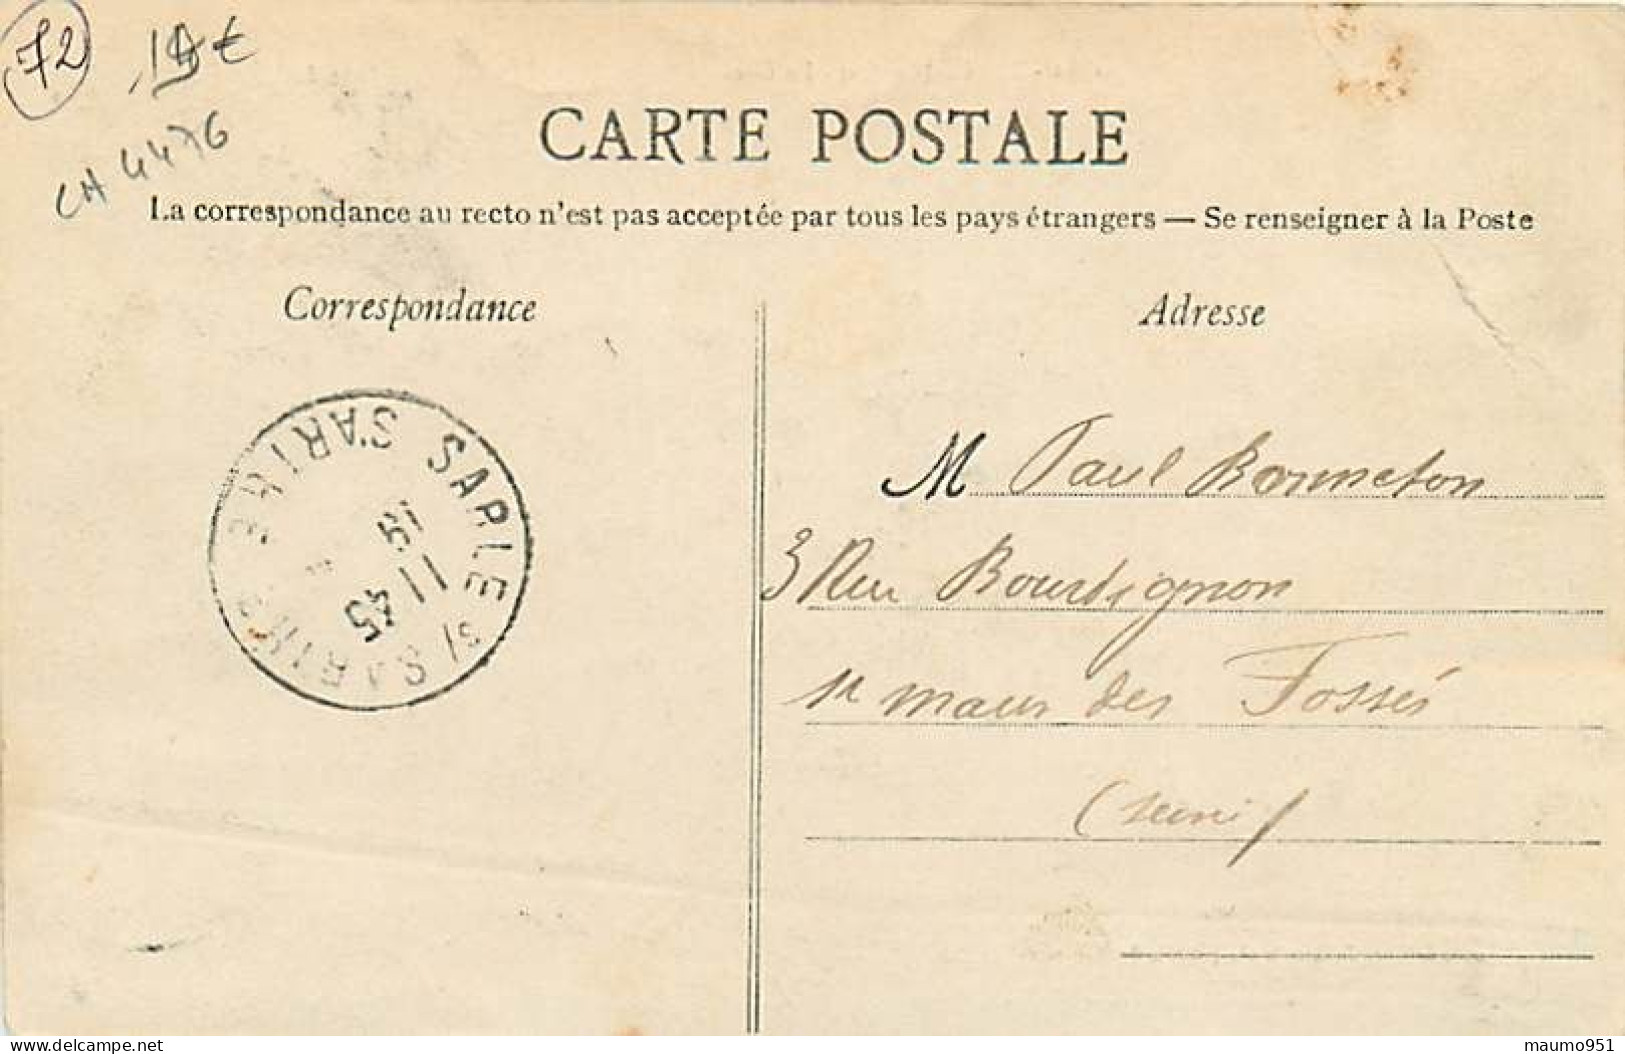 72
19€
CH 4476
CARTE POSTALE
La correspondance au recto n'est pas acceptée par tous les pays étrangers — Se renseigner à la Poste
Correspondance
Adresse
SABLÉ S/ SARTHE SARTHE
18
11 45
M Paul Bonneton
3 Rue Bourbignon
St Maur des Fossés
(Seine)
maumo951